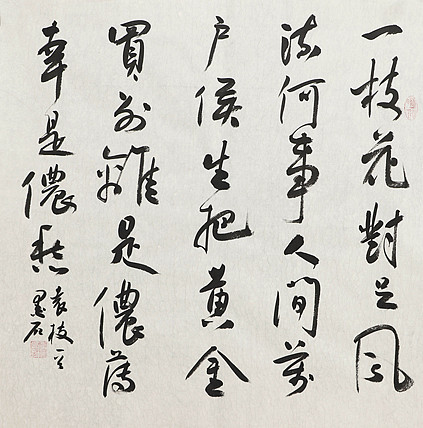 一枝花對足風
流何事人間萬
户侯生把黄金
買别離是儂薄
幸是儂愁
袁枚
墨石